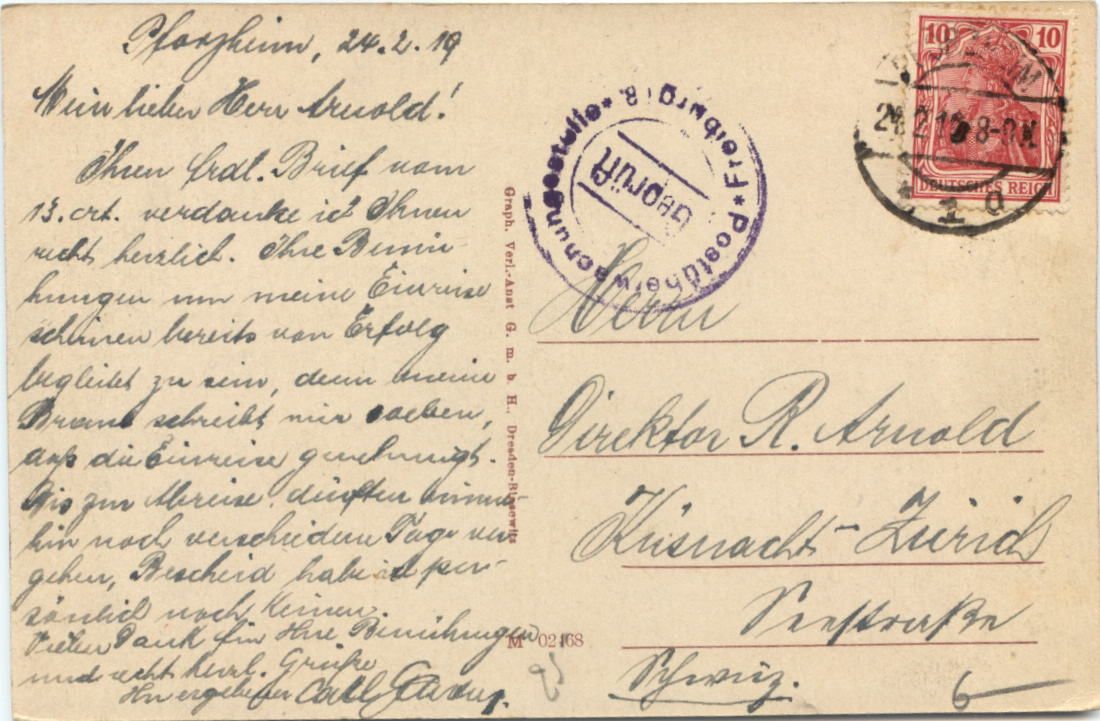 Pforzheim, 24.2.19
Mein lieber Herr Arnold!
Ihren frdl. Brief vom
13. crt. verdanke ich Ihnen
recht herzlich. Ihre Bemü-
hungen um meine Einreise
scheinen bereits von Erfolg
begleitet zu sein, denn meine
Braut schreibt mir soeben,
daß die Einreise genehmigt.
Bis zur Abreise dürften immer
hin noch verschiedene Tage ver
gehen, Bescheid habe ich per-
sönlich noch keinen.
Vielen Dank für Ihre Bemühungen
und recht herzl. Grüße
Ihr ergebener Carl
Graph. Verl.-Anst G. m. b. H., Dresden-Blasewitz
M 02468
*Postüberwachungsstelle* Freiburg i. B.
Geprüft
10 10
DEUTSCHES REICH
PFORZHEIM
24.2.19 8-9N
* 1 a
Herrn
Direktor R. Arnold
Küsnacht-Zürich
Seestraße
Schweiz.
6